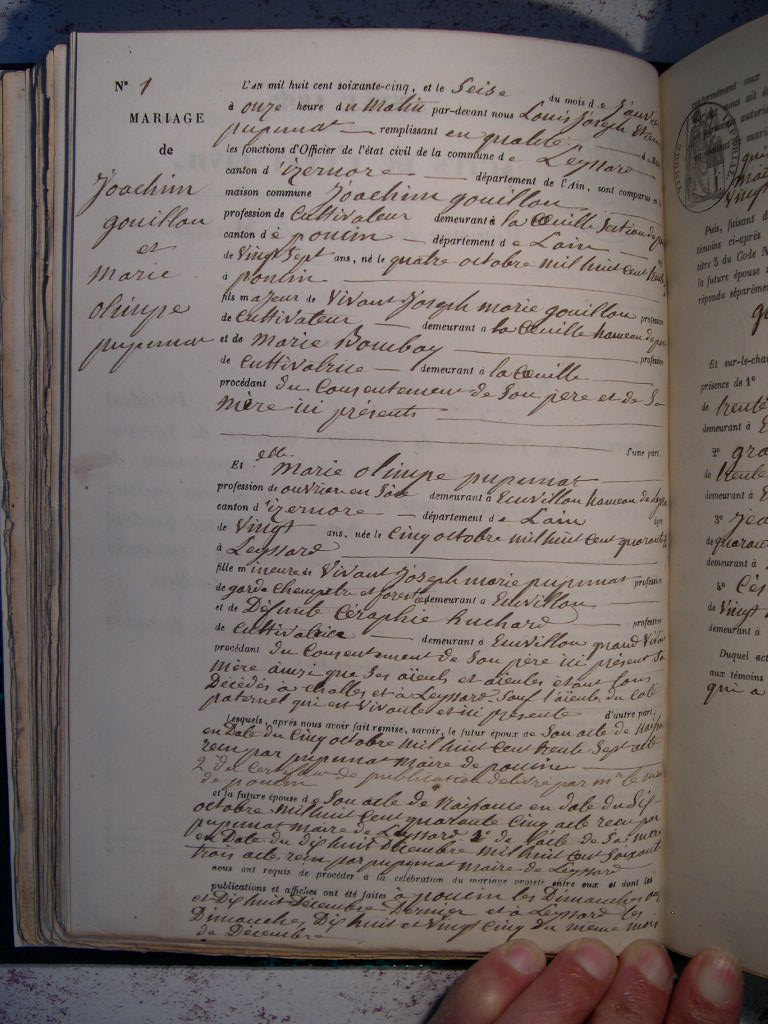 N° 1
MARIAGE
de
Joachim
gouillon
et
marie
olimpe
pupunat
L'AN mil huit cent soixante-cinq, et le Seise du mois de Janvier
à onze heure du Matin par-devant nous Louis Joseph
pupunat remplissant en qualité
les fonctions d'Officier de l'état civil de la commune de Leyssard
canton d'izernore département de l'Ain, sont comparus en
maison commune Joachim gouillon
profession de Cultivateur demeurant à la Cueille Section de
canton de poncin département de Lain
de Vingt Sept ans, né le quatre octobre mil huit cent trente
à poncin
fils majeur de Vivant Joseph marie gouillon profession
de Cultivateur demeurant à la Cueille hameau de
et de Marie Bombay profession
de Cultivatrice demeurant à la Cueille
procédant du Consentement de Son père et de Sa
mère ici présents
d'une part.
Et elle Marie olimpe pupunat
profession de ouvrière en Soie demeurant à Emvillon hameau de
canton d'izernore département de Lain
de Vingt ans, née le Cinq octobre mil huit Cent quarante
à Leyssard
fille mineure de Vivant Joseph marie pupunat profession
de garde Champetre et forestier demeurant à Emvillon
et de Défunte Céraphie Ruchard profession
de Cultivatrice demeurant à Emvillon quand Vivait
procédant du Consentement de Son père ici présent Sa
mère ainsi que Ses aieuls et aieules etant tous
Décédés à Challes et à Leyssard Sauf l'aieule du Coté
paternel qui est Vivante et ici présente d'autre part.
Lesquels, après nous avoir fait remise, savoir, le futur époux de Son acte de Naissance
en Date du Cinq octobre mil huit Cent trente Sept acte
reçu par pupunat Maire de poncin
2° du Certificat de publication délivré par mr le maire
de poncin
et la future épouse de Son acte de Naissance en date du Dix
octobre mil huit cent quarante Cinq acte reçu par
pupunat maire de Leyssard 2° de l'acte de Sa mère
en Date du Dix huit Décembre mil huit Cent Soixante
trois acte reçu par pupunat Maire de Leyssard
nous ont requis de procéder à la célébration du mariage projeté entre eux et dont les
publications et affiches ont été faites à poncin les Dimanches onze
et Dix huit Décembre Dernier et à Leyssard les
Dimanches Dix huit et Vingt Cinq du même mois
de Décembre
Puis, faisant
témoins ci-après
titre 5 du Code N
la future épouse
répondu séparément
Et sur-le-champ
présence de 1°
de trente
demeurant à
2°
de trente
demeurant à
3°
de quarante
demeurant à
4°
de Vingt
demeurant à
Duquel acte
aux témoins
qui a